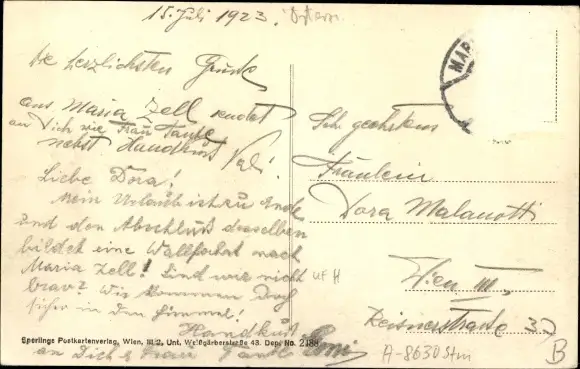 15. Juli 1923. Ostern.
MAR
Die herzlichsten Grüße
aus Maria Zell sendet
an Dich wie Frau Tante
nebst Handkuss
Liebe Dora!
Mein Urlaub ist zu Ende
und den Abschluß desselben
bildet eine Wallfahrt nach
Maria Zell! Sind wir nicht
brav? Wir kommen doch
sicher in den Himmel!
Handkuss
an Dich & Frau Tante Emi
Sperlings Postkartenverlag, Wien, III/2, Unt. Weißgärberstraße 43. Dep. No. 2188
Fräulein
Dora Malanotti
Wien III.
Reisnerstrasse 32
UF H
A-8630 Stm
B